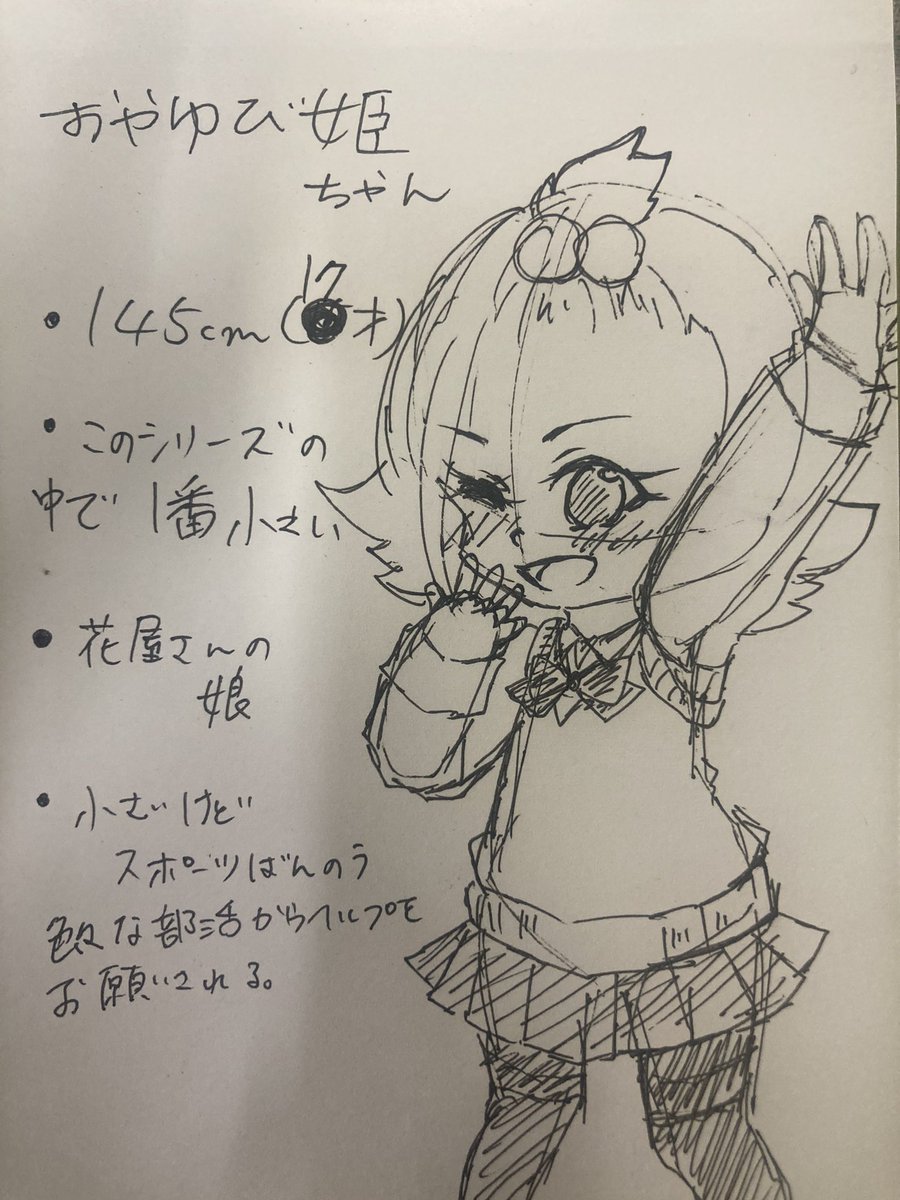 おやゆび姫
ちゃん
• 145cm (17才)
• このシリーズの
中で1番小さい
• 花屋さんの
娘
• 小さいけど
スポーツばんのう
色々な部活からヘルプを
お願いされる。